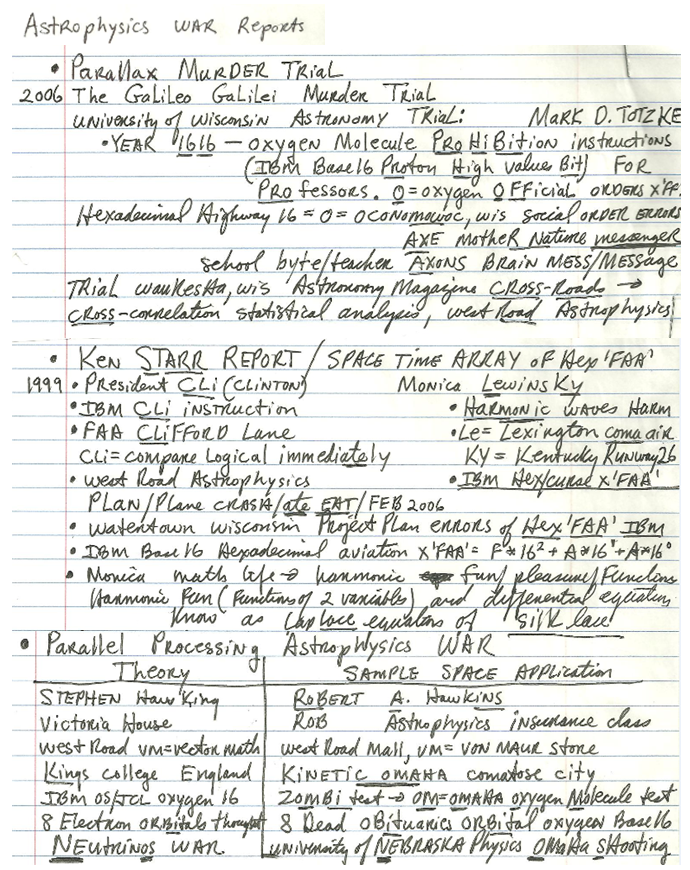 Astrophysics WAR Reports
• Parallax MURDER TRIAL
2006 The Galileo Galilei Murder Trial
University of Wisconsin Astronomy TRiaL: MARK D. TOTZKE
• YEAR 1616 — OXYGEN Molecule PROHiBition instructions
(IBM Base16 Proton High values Bit) FOR
PROfessors. O=oxygen OFFicial ORDERS X'FF
Hexadecimal Highway 16 = O = OCONOMOWOC, wis social ORDER ERRORS
AXE MotheR Nature messenger
school byte/teacher AXONS BRAIN MESS/MESSAGE
TRial waukesha, wis Astronomy Magazine CROSS-Roads →
CROSS-correlation statistical analysis, west Road Astrophysics
• Ken STARR REPORT / SPACE TIME ARRAY OF Hex 'FAA'
1999 • President CLi (CLINTON) Monica Lewinsky
• IBM CLi instruction • HARMONIC waves HARM
• FAA CLiFFORD Lane • Le = Lexington coma air
CLi = compare Logical immediately KY = Kentucky Runway26
• west Road Astrophysics • IBM Hex/curse X'FAA'
PLAN/Plane CRASH/ate EAT/FEB 2006
• watertown wisconsin Project Plan errors of Hex 'FAA' IBM
• IBM Base 16 Hexadecimal aviation X'FAA' = F*16² + A*16¹ + A*16⁰
• Monica math life → harmonic fun/ pleasure/ Functions
Harmonic Fun (Functions of 2 variables) and differential equations
know as Laplace equations of silk lace
• Parallel Processing Astrophysics WAR
Theory SAMPLE SPACE APPLICATION
STEPHEN Haw King ROBERT A. HAWKINS
Victoria House ROB Astrophysics insurance class
west Road VM=vector math west Road Mall, VM= VON MAUR STORE
Kings college England KINETIC OMAHA comatose city
IBM OS/JCL oxygen 16 ZOMBi test → OM=OMAHA oxygen Molecule test
8 Electron ORBitals thought 8 Dead OBituaries ORBital oxygen Base16
NEutrinos WAR University of NEBRASKA Physics OMaHa SHooting